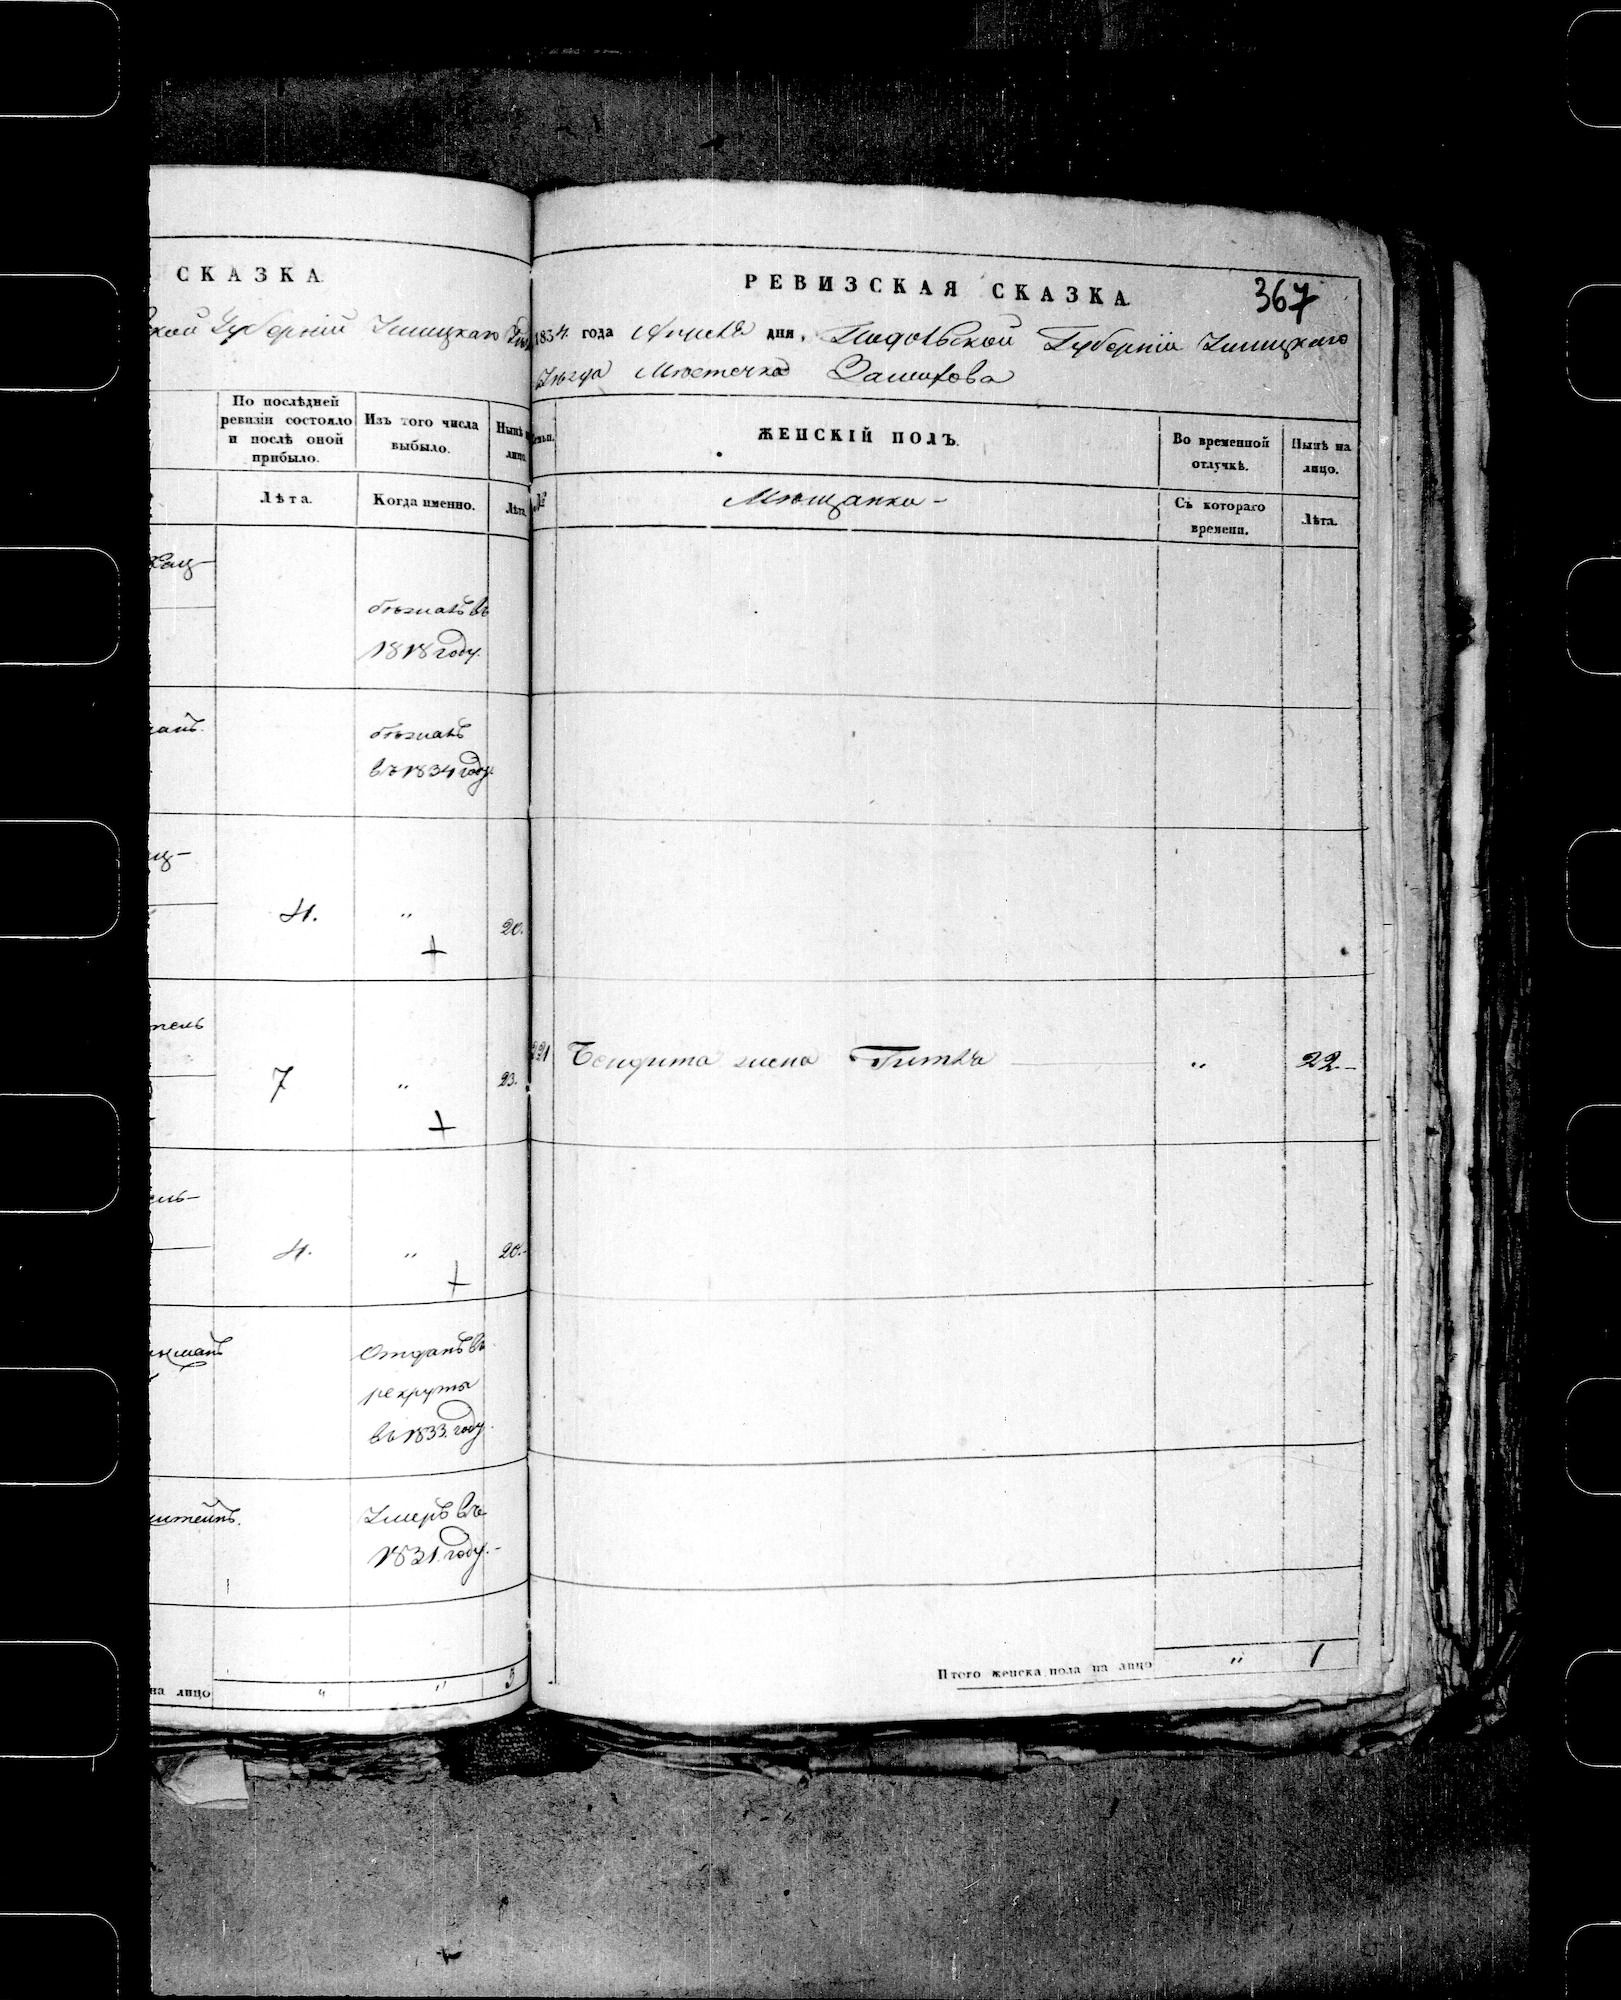 СКАЗКА
ской Губернiи Ушицкаго
По послѣдней
ревизiи состояло
и послѣ оной
прибыло.
Изъ того числа
выбыло.
Нынѣ
лицо.
Лѣта.
Когда именно.
Лѣта.
бѣжалъ въ
1818 году.
бѣжалъ
въ 1834 году.
4.
"
20.
7
"
23.
4.
"
20.
Отданъ въ
рекруты
въ 1833. году.
штейнъ.
Умеръ въ
1831. году.
на лицо
"
"
3
РЕВИЗСКАЯ СКАЗКА
367
1834. года Апрѣля дня, Подольской Губернiи Ушицкаго
Уѣзда Мѣстечка Замихова
ЖЕНСКIЙ ПОЛЪ.
Во временной
отлучкѣ.
Нынѣ на
лицо.
№
Мѣщанка
Съ котораго
времени.
Лѣта.
221
жена Гитля
"
22.
Итого женска пола на лицо
"
1